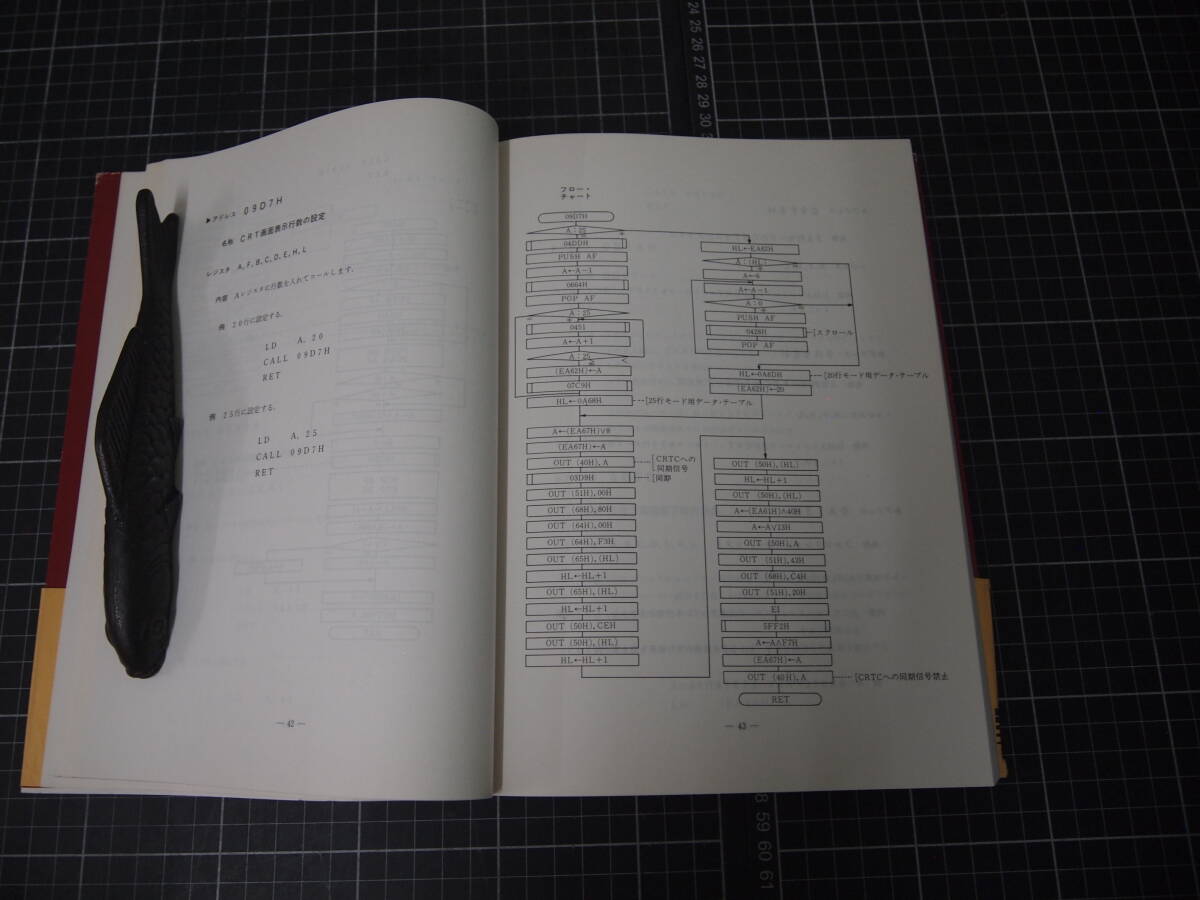 ▶アドレス 09D7H
名称 CRT画面表示行数の設定
レジスタ A,F,B,C,D,E,H,L
内容 Aレジスタに行数を入れてコールします.
例 20行に設定する.
LD A,20
CALL 09D7H
RET
例 25行に設定する.
LD A,25
CALL 09D7H
RET
— 42 —
フロー・
チャート
09D7H
A:25
04DDH
PUSH AF
A←A−1
0664H
POP AF
A:25
0451
A←A+1
A:25
(EA62H)←A
07C9H
HL←0A68H
[25行モード用データ・テーブル
HL←EA62H
A:(HL)
A←6
A←A−1
A:0
PUSH AF
0428H
[スクロール
POP AF
HL←0A6DH
[20行モード用データ・テーブル
(EA62H)←20
A←(EA67H)∨8
(EA67H)←A
OUT (40H),A
[CRTCへの
同期信号
03D9H
[同期
OUT (51H),00H
OUT (68H),80H
OUT (64H),00H
OUT (64H),F3H
OUT (65H),(HL)
HL←HL+1
OUT (65H),(HL)
HL←HL+1
OUT (50H),CEH
OUT (50H),(HL)
HL←HL+1
OUT (50H),(HL)
HL←HL+1
OUT (50H),(HL)
A←(EA61H)∧40H
A←A∨13H
OUT (50H),A
OUT (51H),43H
OUT (68H),C4H
OUT (51H),20H
EI
5FF2H
A←A∧F7H
(EA67H)←A
OUT (40H),A
[CRTCへの同期信号禁止
RET
— 43 —
24
25
26
27
28
29
30
58
59
60
61